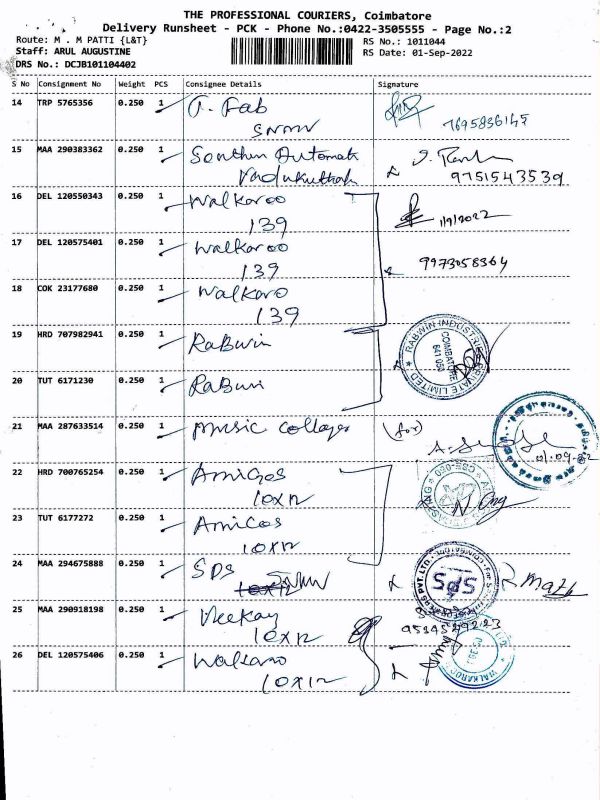 THE PROFESSIONAL COURIERS, Coimbatore
Delivery Runsheet - PCK - Phone No.:0422-3505555 - Page No.:2
Route: M . M PATTI {L&T}
RS No.: 1011044
Staff: ARUL AUGUSTINE
RS Date: 01-Sep-2022
DRS No.: DCJB101104402
S No Consignment No Weight PCS Consignee Details Signature
14 TRP 5765356 0.250 1 Fab
7695836145
15 MAA 290383362 0.250 1
9751543539
16 DEL 120550343 0.250 1 Walkaroo
139 1/9/2022
17 DEL 120575401 0.250 1 Walkaroo 9973058364
139
18 COK 23177680 0.250 1 Walkaro
139
19 HRD 707982941 0.250 1 RaBwin
RABWIN INDUSTRIES PRIVATE LIMITED
COIMBATORE
641 050
20 TUT 6171230 0.250 1
21 MAA 287633514 0.250 1 Music College (for)
22 HRD 700765254 0.250 1 Amigos
10x12
23 TUT 6177272 0.250 1 Amicos
10x12
24 MAA 294675888 0.250 1 SPS
SPS
25 MAA 290918198 0.250 1 Veekay
10x12
26 DEL 120575406 0.250 1
10x12
WALKAROO